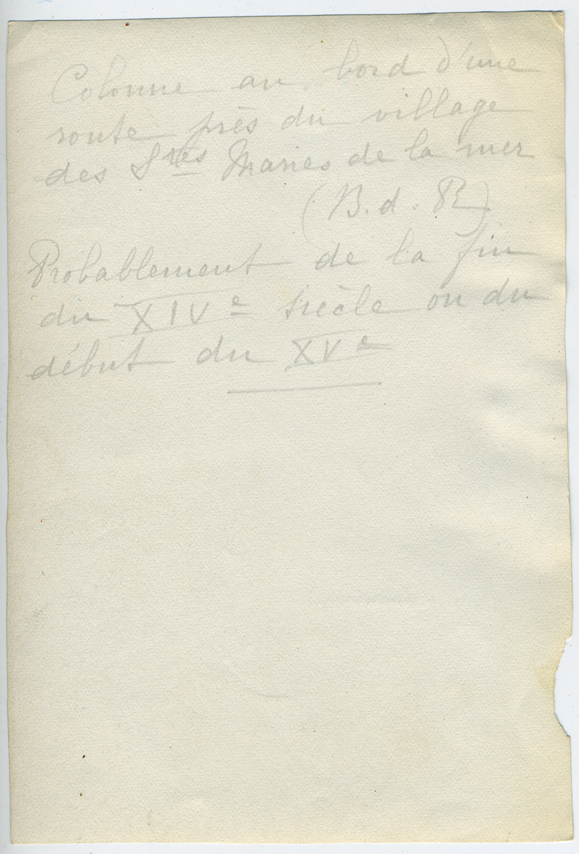 Colonne au bord d'une
route près du village
des Stes Maries de la mer
(B.d.R)
Probablement de la fin
du XIVe siècle ou du
début du XVe